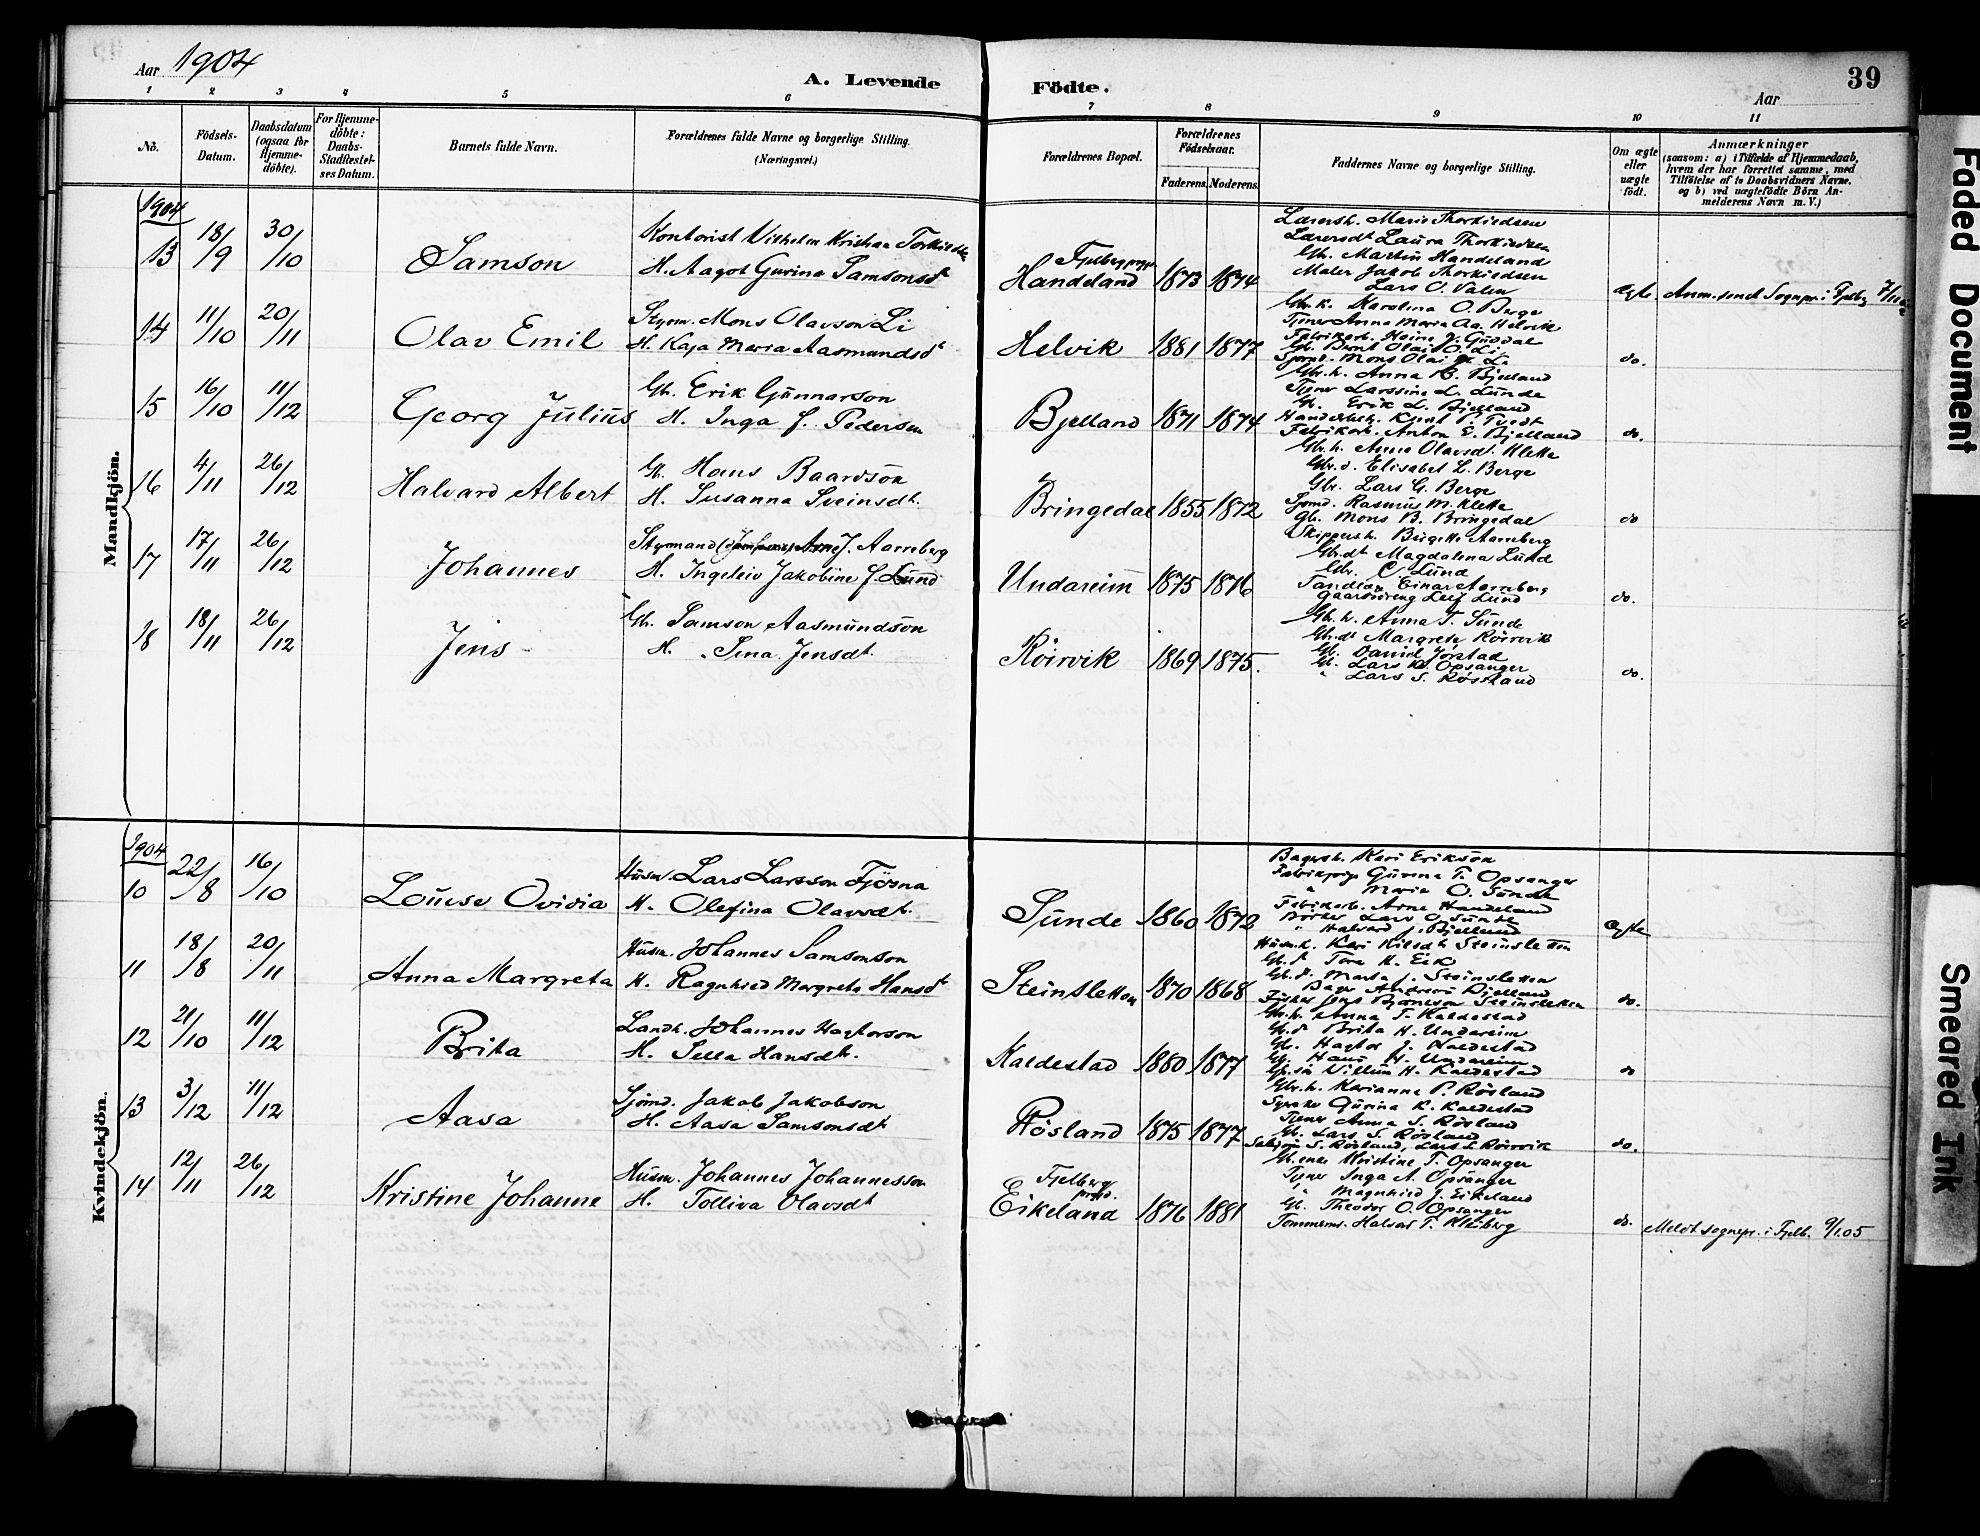 Aar 1904
A. Levende Födte.
Aar
39
1 2 3 4 5 6 7 8 9 10 11
No.
Födsels-Datum.
Daabsdatum (ogsaa for Hjemme-döbte).
For Hjemme-döbte: Daabs-Stadfæstel-ses Datum.
Barnets fulde Navn.
Forældrenes fulde Navne og borgerlige Stilling. (Næringsvei.)
Forældrenes Bopæl.
Forældrenes Födselsaar.
Faderens. Moderens.
Faddernes Navne og borgerlige Stilling.
Om ægte eller uægte födt.
Anmærkninger (saasom: a) i Tilfælde af Hjemmedaab, hvem der har forrettet samme, med Tilföielse af to Daabsvidners Navne, og b) ved uægtefödte Börn An-melderens Navn m. V.)
Mandkjön.
1904
13 18/9 30/10 Samson
Kontorist Vilhelm Kristian
H. Aagot Gurina Samsonsdt
Fjelberg
Handeland 1873 1874
Marie Thorkildsen
Laura Thorkildsen
Gb. Martin Handeland
Maler Jakob Thorkildsen
Lars O. Valen
ægte. Anm. sendt Sognepr. i Fjelbg
14 11/10 20/11 Olav Emil
Styrm. Mons Olavson Li
H. Kaja Maria Aasmundsdt
Helvik 1881 1877
Gbr. k. Karolina O. Berge
Tjener Anna Maria Aa. Helvik
Gb. Bernt Olai O. Li
Mons Olai
do.
15 16/10 11/12 Georg Julius
Gb. Erik Gunnarson
H. Inga f. Pedersen
Bjelland 1871 1874
Gbr. k. Anna E. Bjelland
Tjener Larssine L. Lunde
Gb. Erik L. Bjelland
Knut P. Tvedt
Fabrikarb. Anton E. Bjelland
do.
16 4/11 26/12 Halvard Albert
Gb. Hans Baardson
H. Susanna Sveinsdt.
Bringedal 1855 1872
Gbr. k. Anna Olavsdt. Kletta
Gbr. d. Elisabet L. Berge
Gbr. Lars G. Berge
Sjømd. Rasmus M. Kletta
Gb. Mons B. Bringedal
do
17 17/11 26/12 Johannes
Styrmand Arne J. Aarreberg
H. Ingeleiv Jakobine f. Lund
Undareim 1875 1876
Birgitte Aarreberg
Gbr. dt Magdalena Lund
Gbr. O. Lund
Tandlæge Einar Aarreberg
Gaardsdreng Leif Lund
do.
18 18/11 26/12 Jens
Gb. Samson Aasmundson
H. Sina Jensdt.
Røirvik 1869 1875.
Gbr. k. Anna T. Sunde
Gbr. dt Margreta Röirvik
Gb. Daniel Jörstad
Gb. Lars K. Opsanger
" Lars S. Røssland
do.
Kvindekjön.
1904
10 22/8 16/10 Louise Ovidia
Husm. Lars Larsson Fjösna
H. Olefina Olavsdt.
Sunde 1860 1872
Bagersk. Kari Erikson
Gurina T. Opsanger
" Maria O. Sunde
Fabrikarb. Arne Handeland
Lars O. Sunde
" Halvard J. Bjelland
ægte
11 18/8 20/11 Anna Margreta
Husm. Johannes Samsonson
H. Ragnhild Margreta Hansdt
Steinsletten 1870 1868
Husm. k. Kari Nilsdt. Steinsletten
Gb. d. Tora H. Eik
Gb. d. Marta J. Steinsletten
Bager Anderson Bjelland
Fisker Jens Bjørneson Steinsletten
do.
12 21/10 11/12 Brita
Landh. Johannes Hagtorson
H. Sella Hansdt.
Kaldestad 1880 1877
Gb. k. Anna T. Kaldestad
Gb. d. Brita H. Undareim
Gb. Hagtor J. Kaldestad
Gb. Hans H. Undareim
Gb. sön Villum H. Kaldestad
do
13 3/12 11/12 Aasa
Sjömd. Jakob Jakobson
H. Aasa Samsonsdt
Røsland 1875 1877
Gbr. k. Karianna P. Røsland
Gurina K. Kaldestad
Tjener Anna S. Røsland
Gb. Lars S. Røsland
S. Røsland, Lars S. Røirvik
do.
14 12/11 26/12 Kristine Johanne
Husm. Johannes Johannesson
H. Tolliva Olavsdt
Fjelberg prgd.
Eikeland 1876 1881
Gb. enke Kristine T. Opsanger
Tjener Inga A. Opsanger
" Magnhild J. Eikeland
Gb. Theodor O. Opsanger
Tømmerm. Halvar T. Kleiberg
do. Meldt sognepr. i Fjelb. 9/1.05
Faded Document
Smeared Ink